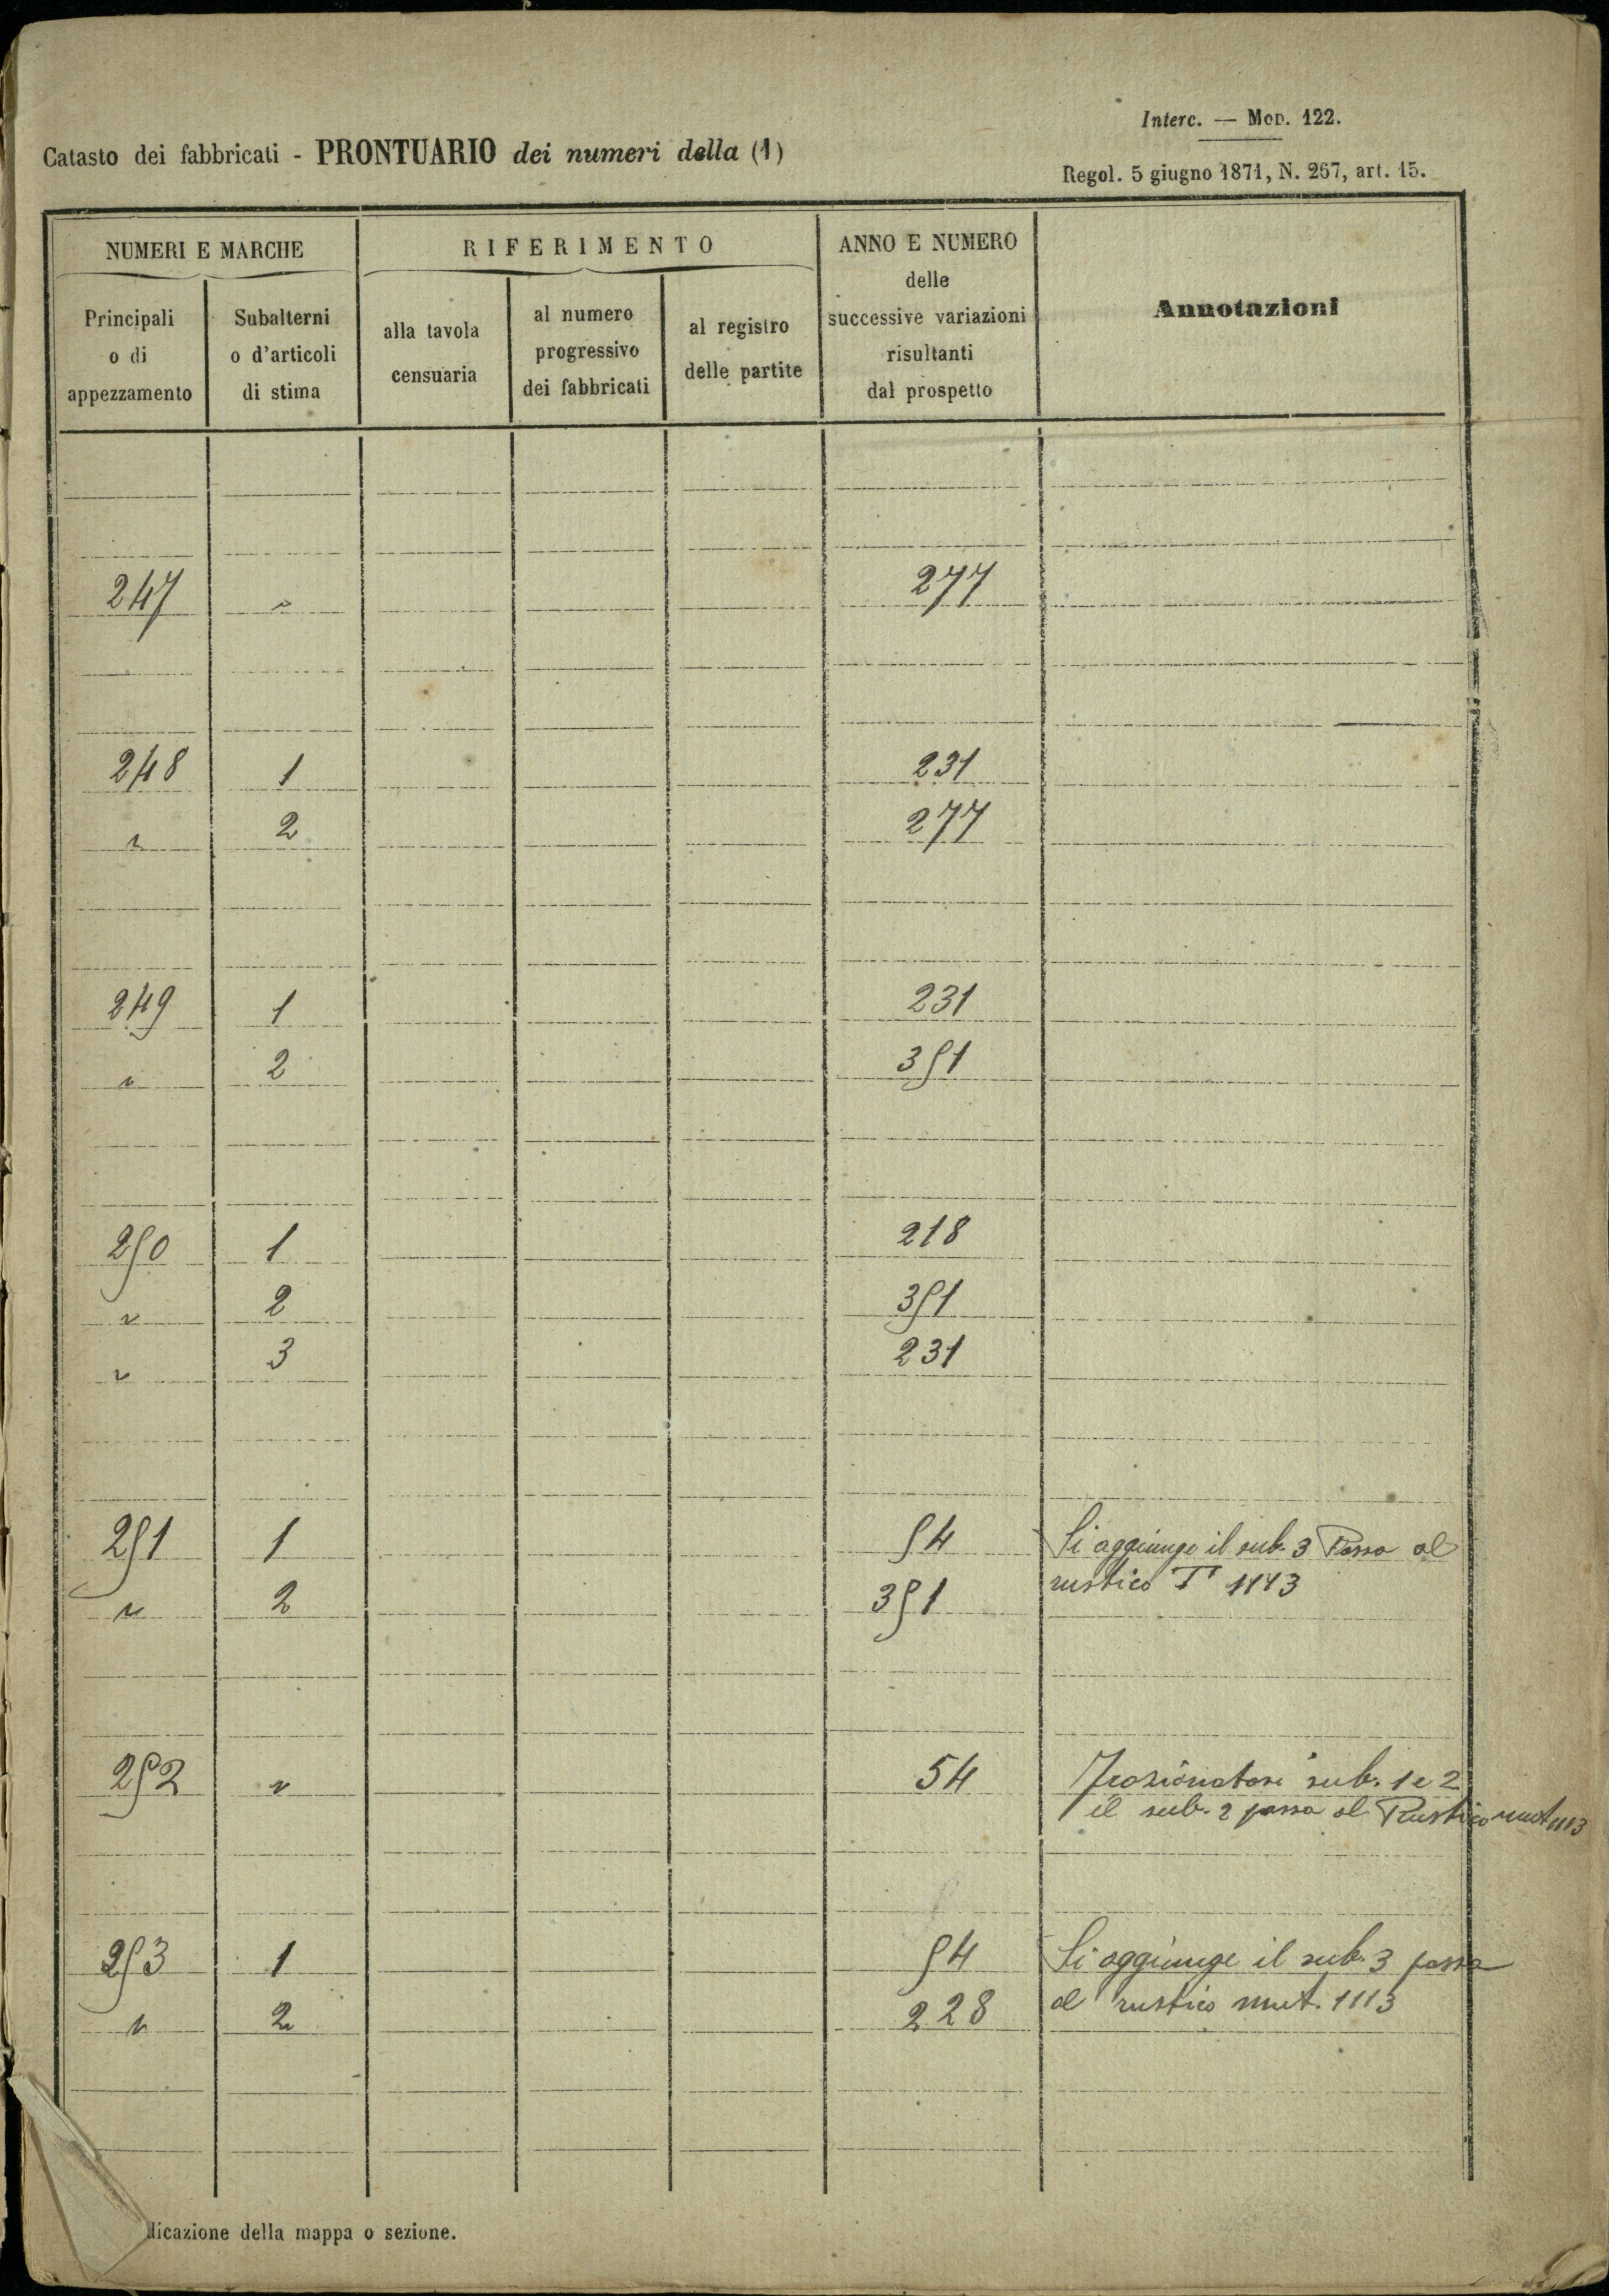 Interc. — Mod. 122.
Catasto dei fabbricati - PRONTUARIO dei numeri della (1)
Regol. 5 giugno 1871, N. 267, art. 15.
NUMERI E MARCHE
RIFERIMENTO
ANNO E NUMERO
delle
successive variazioni
risultanti
dal prospetto
Annotazioni
Principali
o di
appezzamento
Subalterni
o d'articoli
di stima
alla tavola
censuaria
al numero
progressivo
dei fabbricati
al registro
delle partite
247 " 277
248 1 231
" 2 277
249 1 231
" 2 351
250 1 218
" 2 351
" 3 231
251 1 54 Si aggiunge il sub. 3 Passa al
" 2 351 rustico 1113
252 " 54 Frazionatosi sub. 1 e 2
il sub. 2 passa al Rustico mut 1113
253 1 54 Si aggiunge il sub. 3 passa
" 2 228 al rustico mut. 1113
dicazione della mappa o sezione.